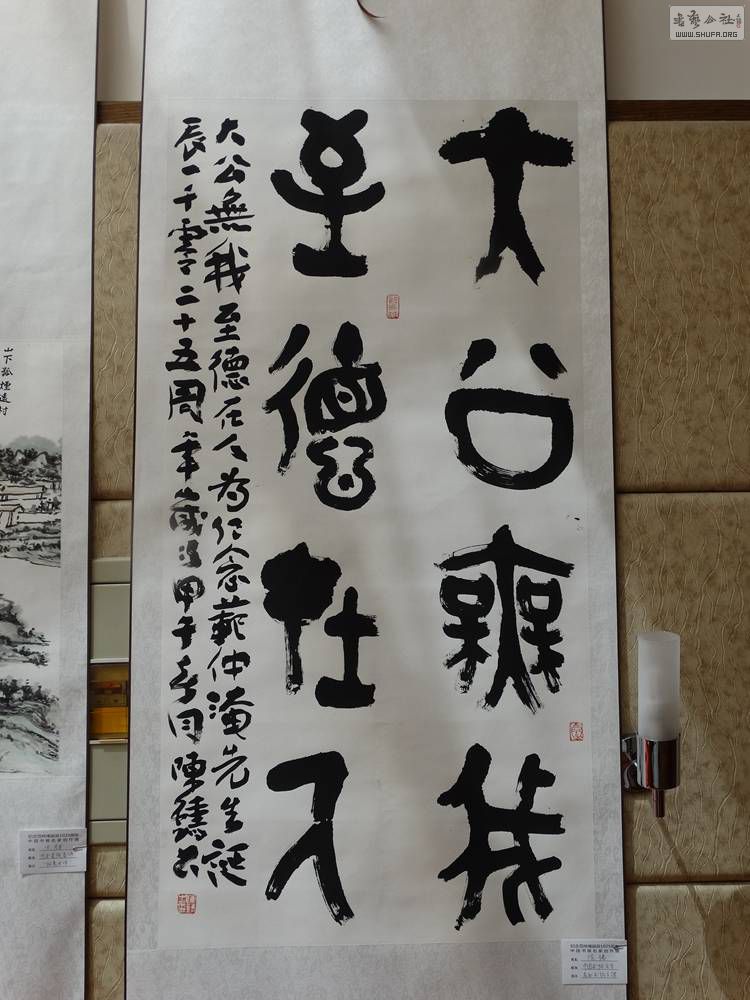 大公無我
至德在人
大公無我至德在人為紀念范仲淹先生誕
辰一千零二十五周年歲次甲午春月陳繡書
山下孤煙遠村
書藝公社
WWW.SHUFA.ORG